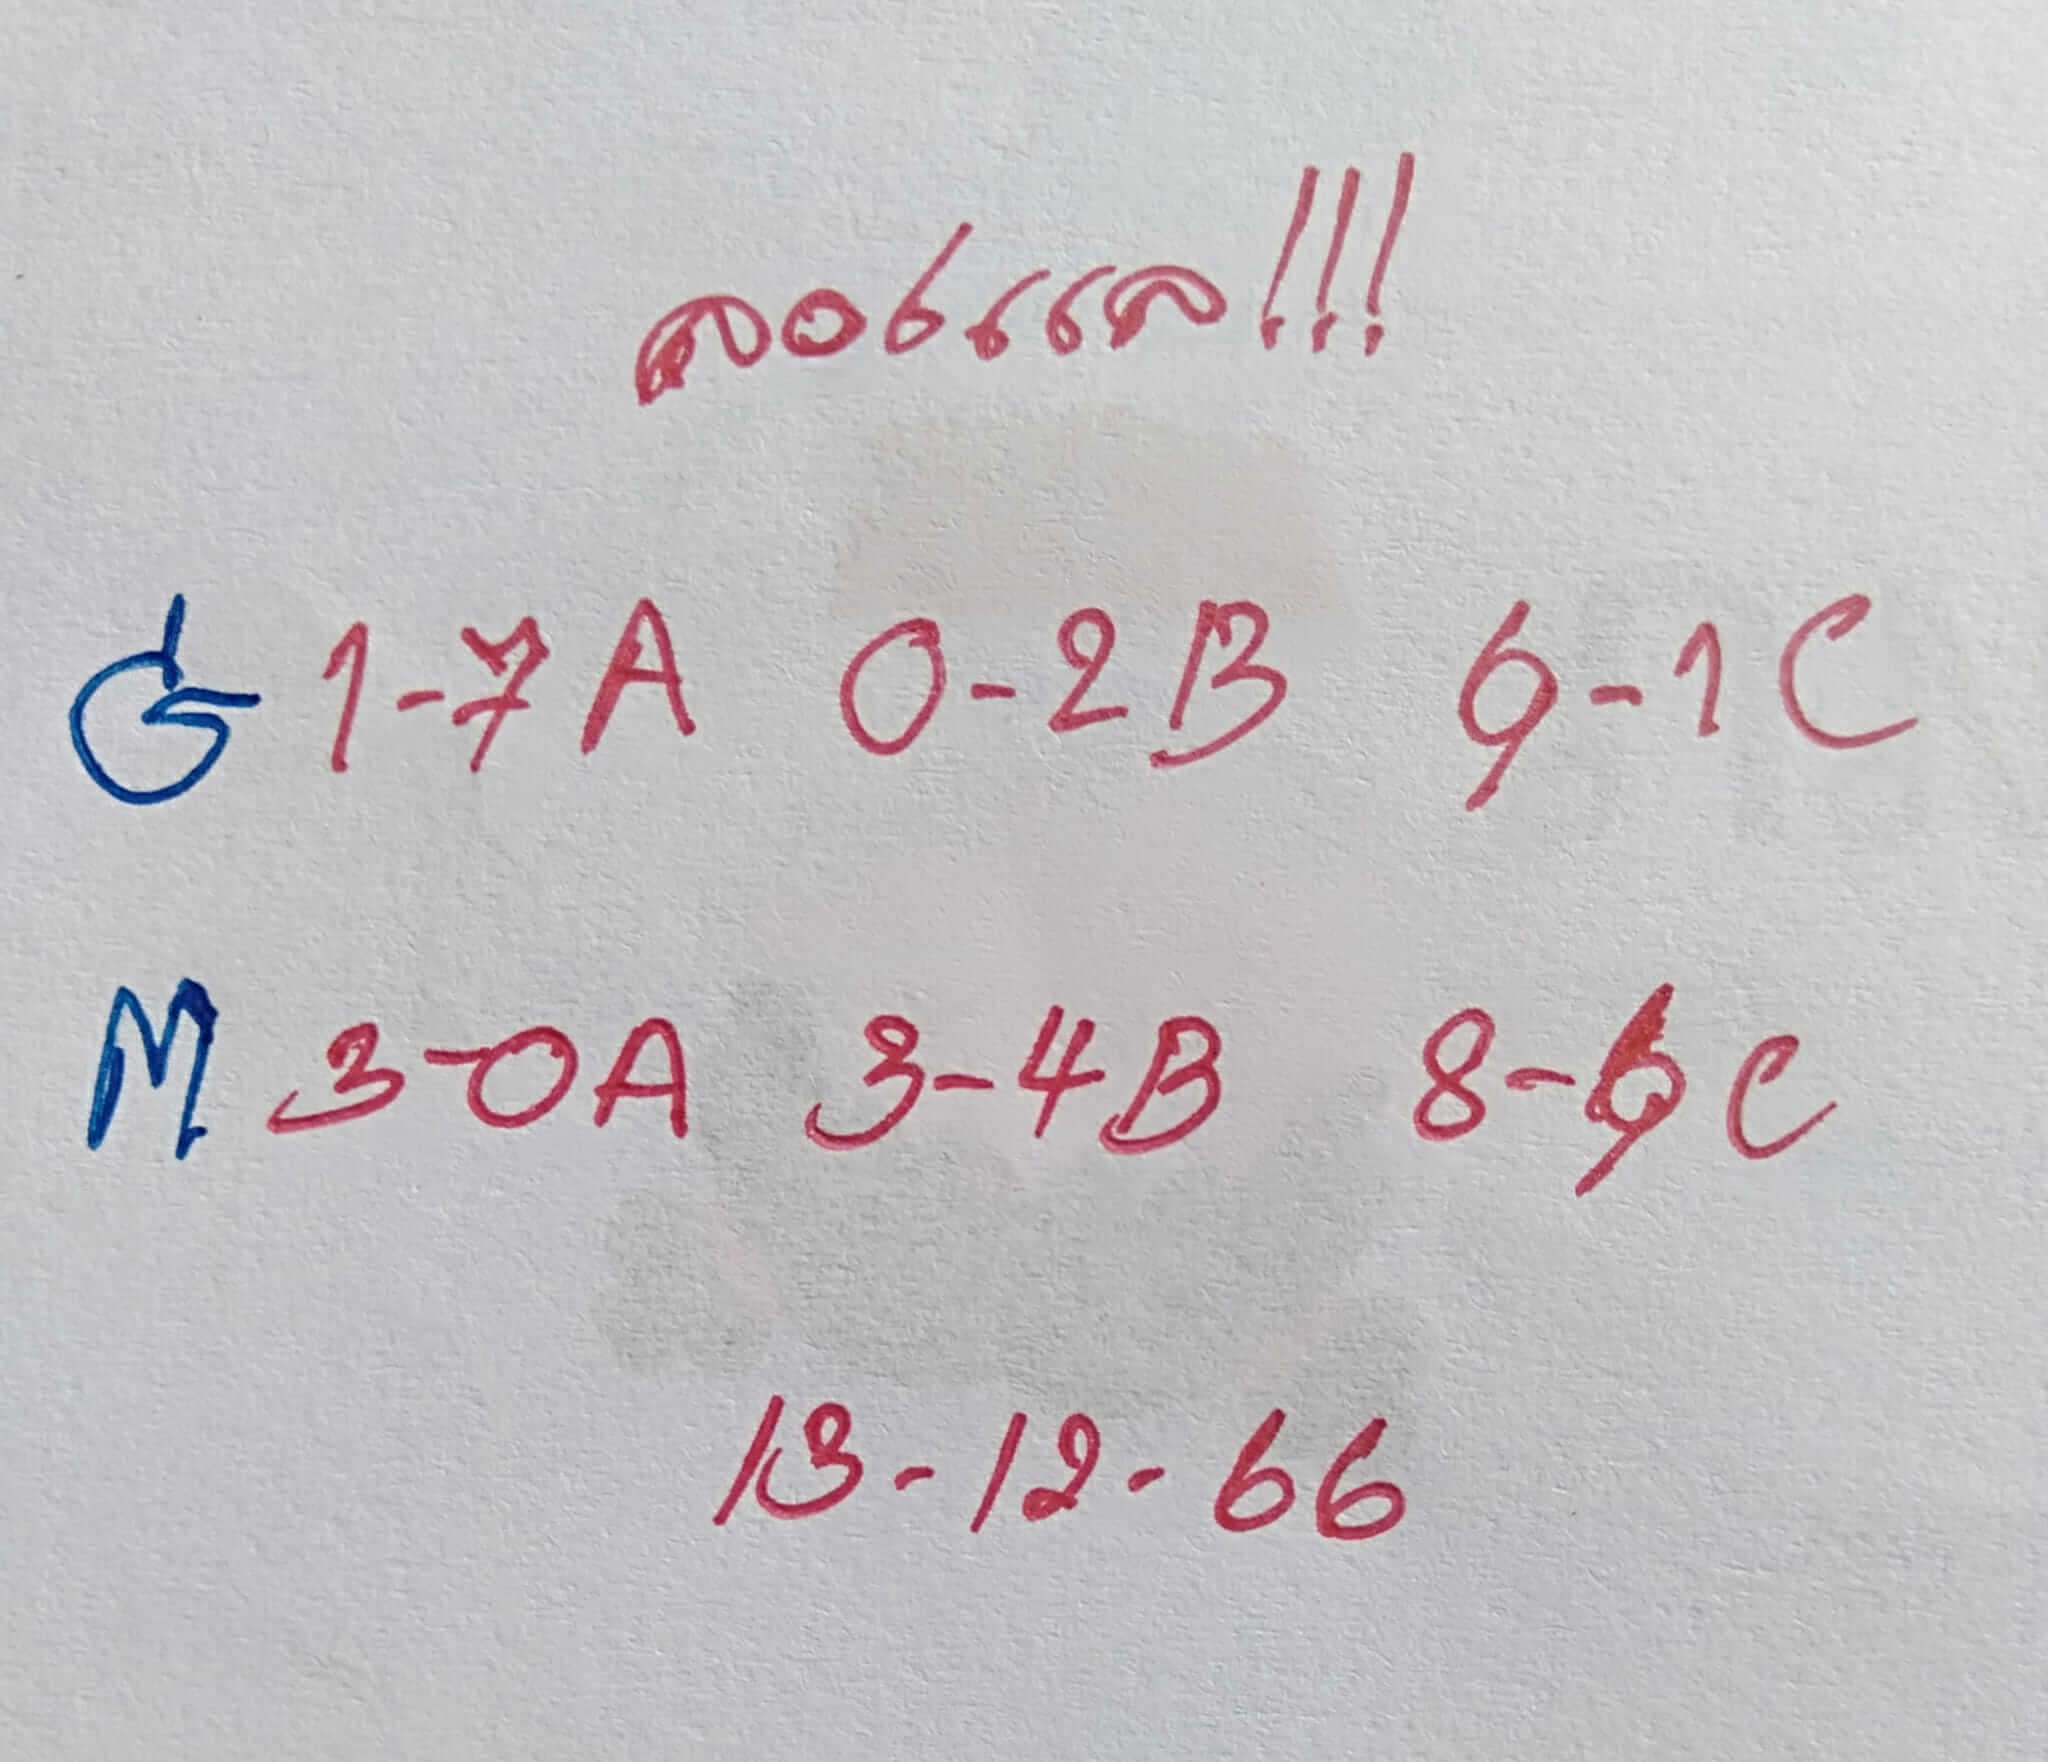 G 1-7A 0-2B 9-1C
M 3-0A 3-4B 8-9C
13-12-66